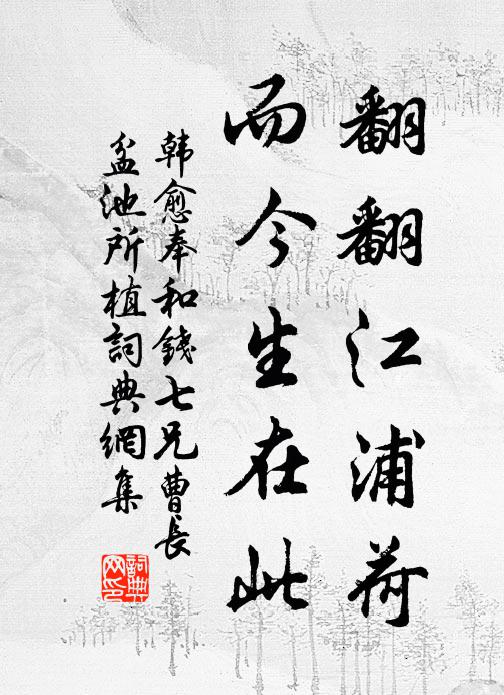 翻翻江浦荷
而今生在此
韩愈奉和錢七兄曹長
盆池所植詞典網集
詞典网印